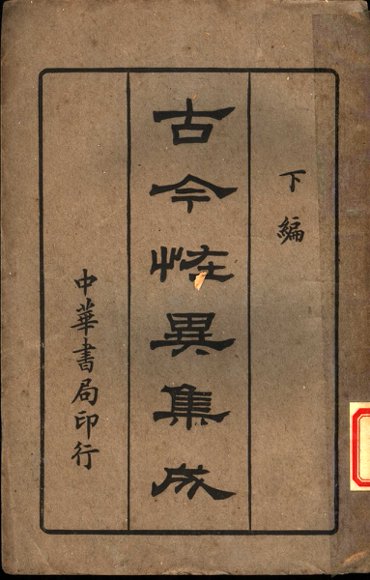 下編
古今恠異集成
中華書局印行